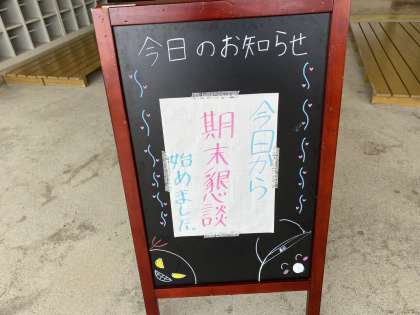 今日のお知らせ
今日から
期末懇談
始めました